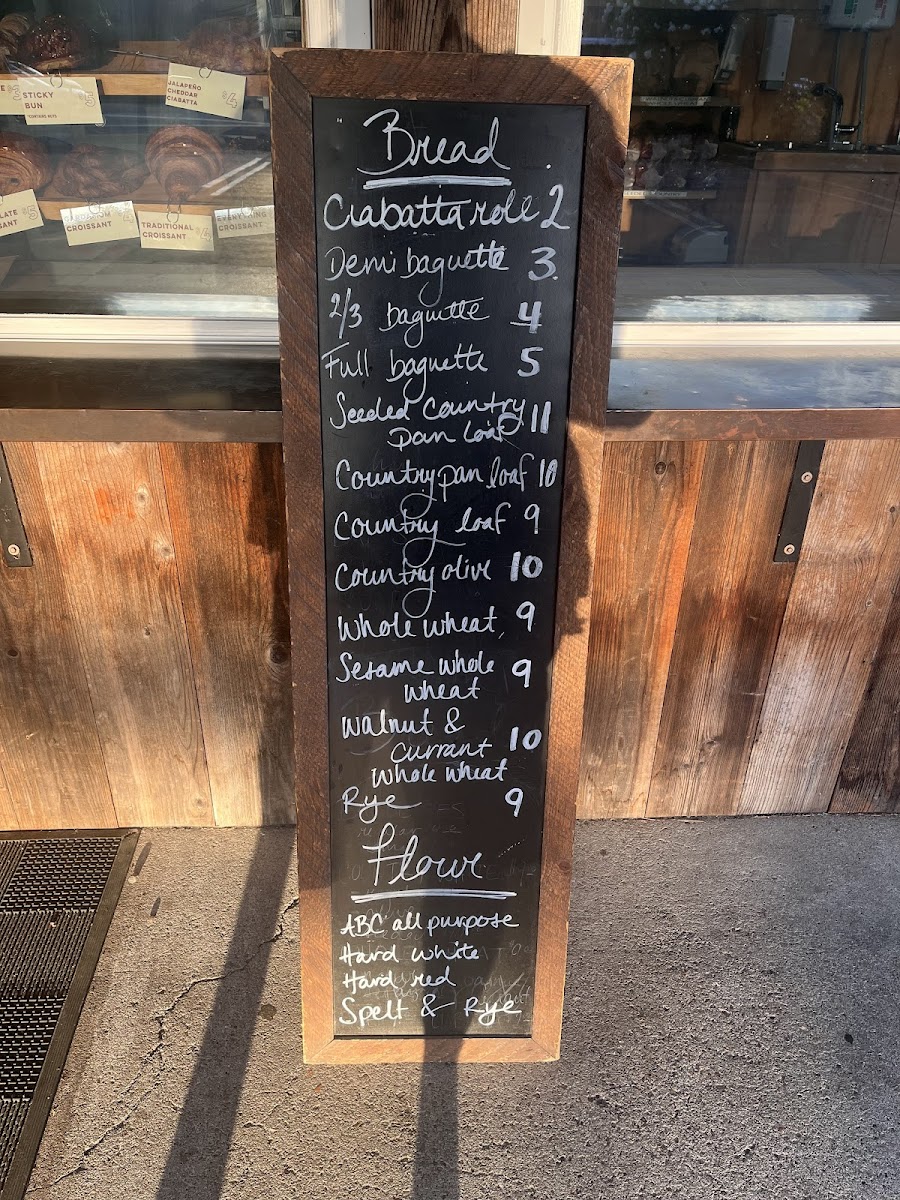 STICKY
BUN
$5
JALAPEÑO
CHEDDAR
CIABATTA
$4
CARDAMOM
CROISSANT
TRADITIONAL
CROISSANT
$4
EVERYTHING
CROISSANT
Bread
Ciabatta role 2
Demi baguette 3.
2/3 baguette 4
Full baguette 5
Seeded Country 11
Pan loaf
Country pan loaf 10
Country loaf 9
Country olive 10
Whole wheat, 9
Sesame whole 9
wheat
Walnut &
Currant 10
Whole wheat
Rye 9
Flour
ABC all purpose
Hard white
Hard red
Spelt & Rye